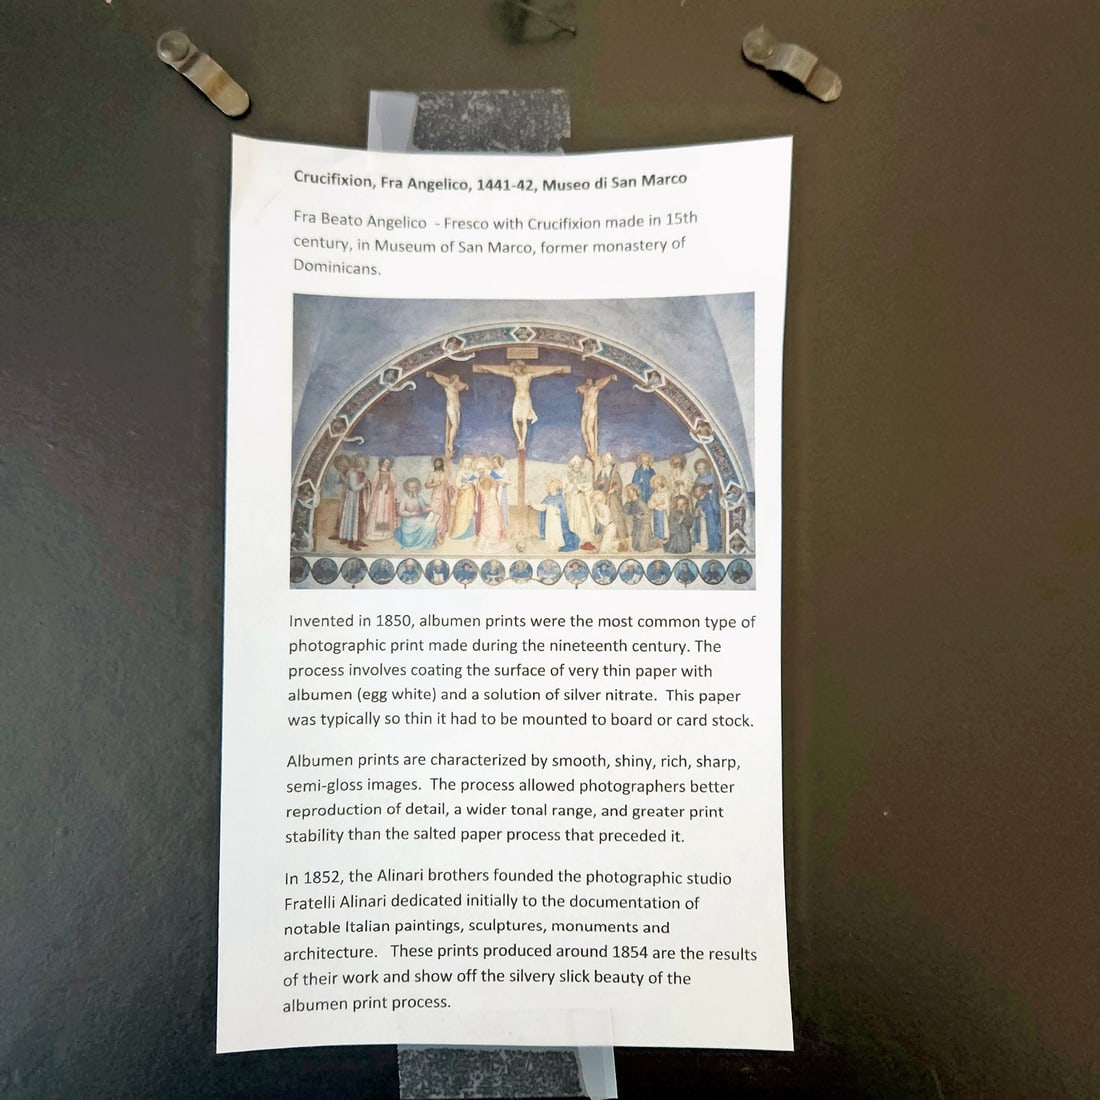 Crucifixion, Fra Angelico, 1441-42, Museo di San Marco
Fra Beato Angelico - Fresco with Crucifixion made in 15th
century, in Museum of San Marco, former monastery of
Dominicans.
Invented in 1850, albumen prints were the most common type of
photographic print made during the nineteenth century. The
process involves coating the surface of very thin paper with
albumen (egg white) and a solution of silver nitrate. This paper
was typically so thin it had to be mounted to board or card stock.
Albumen prints are characterized by smooth, shiny, rich, sharp,
semi-gloss images. The process allowed photographers better
reproduction of detail, a wider tonal range, and greater print
stability than the salted paper process that preceded it.
In 1852, the Alinari brothers founded the photographic studio
Fratelli Alinari dedicated initially to the documentation of
notable Italian paintings, sculptures, monuments and
architecture. These prints produced around 1854 are the results
of their work and show off the silvery slick beauty of the
albumen print process.